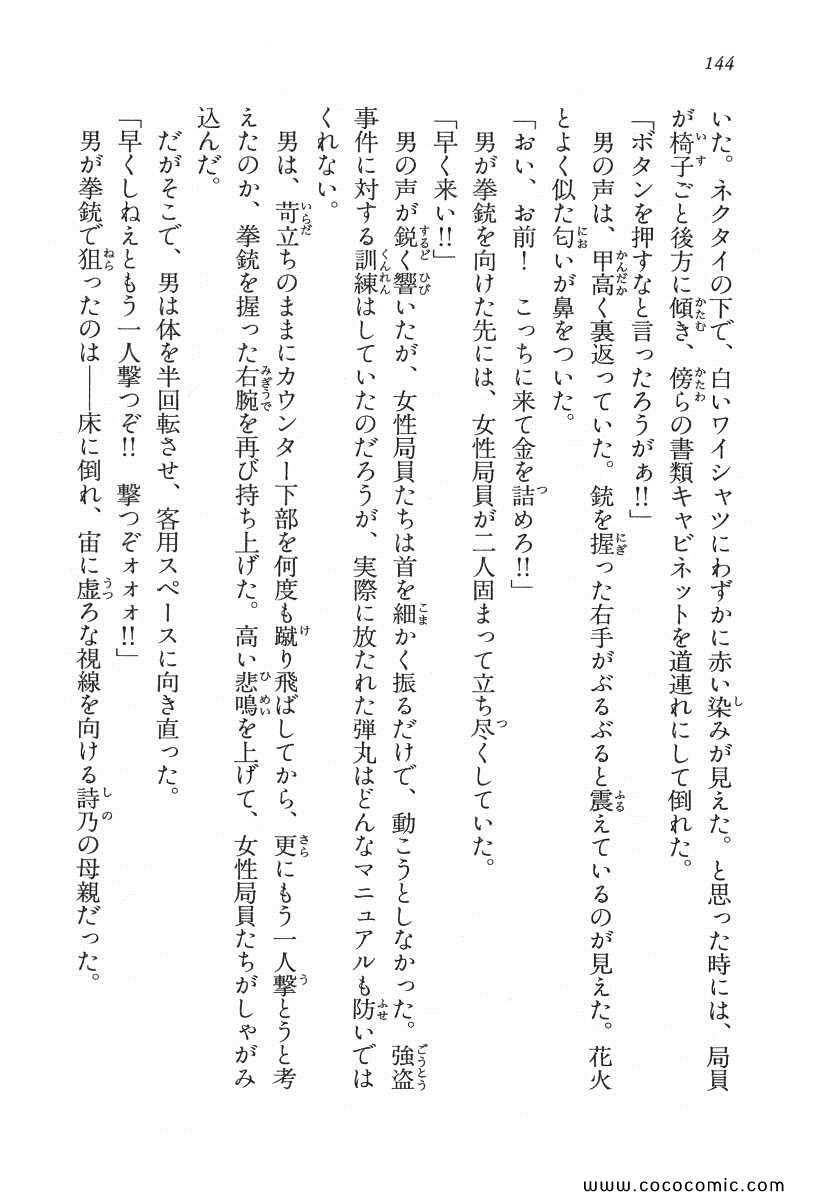 144
いた。ネクタイの下で、白いワイシャツにわずかに赤い染みが見えた。と思った時には、局員
が椅子ごと後方に傾き、傍らの書類キャビネットを道連れにして倒れた。
「ボタンを押すなと言ったろうがぁ!!」
男の声は、甲高く裏返っていた。銃を握った右手がぶるぶると震えているのが見えた。花火
とよく似た匂いが鼻をついた。
「おい、お前！　こっちに来て金を詰めろ!!」
男が拳銃を向けた先には、女性局員が二人固まって立ち尽くしていた。
「早く来い!!」
男の声が鋭く響いたが、女性局員たちは首を細かく振るだけで、動こうとしなかった。強盗
事件に対する訓練はしていたのだろうが、実際に放たれた弾丸はどんなマニュアルも防いでは
くれない。
男は、苛立ちのままにカウンター下部を何度も蹴り飛ばしてから、更にもう一人撃とうと考
えたのか、拳銃を握った右腕を再び持ち上げた。高い悲鳴を上げて、女性局員たちがしゃがみ
込んだ。
だがそこで、男は体を半回転させ、客用スペースに向き直った。
「早くしねえともう一人撃つぞ!!　撃つぞォォォ!!」
男が拳銃で狙ったのは――床に倒れ、宙に虚ろな視線を向ける詩乃の母親だった。
www.cococomic.com